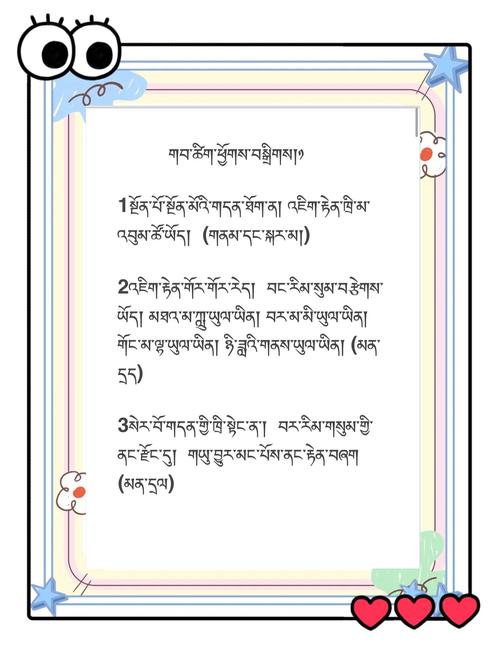 གབ་ཚིག་ཕྱོགས་བསྒྲིགས།༡
1སྔོན་པོ་སྔོན་མོའི་གདན་ཐོག་ན། འཇིག་རྟེན་ཁྲི་མ་
འབུམ་ཚོ་ཡོད། (གནམ་དང་སྐར་མ།)
2འཇིག་རྟེན་གོར་གོར་རེད། བང་རིམ་སུམ་བརྩེགས་
ཡོད། མཐའ་མ་ཀླུ་ཡུལ་ཡིན། བར་མ་མི་ཡུལ་ཡིན།
གོང་མ་ལྷ་ཡུལ་ཡིན། ཉི་ཟླའི་གནས་ཡུལ་ཡིན། (མན་
དྲད)
3སེར་པོ་གདན་གྱི་ཁྲི་སྟེང་ན་། བར་རིམ་གསུམ་གྱི་
ནང་རྫོང་དུ། གཡུ་བྱུར་མང་པོས་ནང་རྟེན་བཞག
(མན་དྲལ)